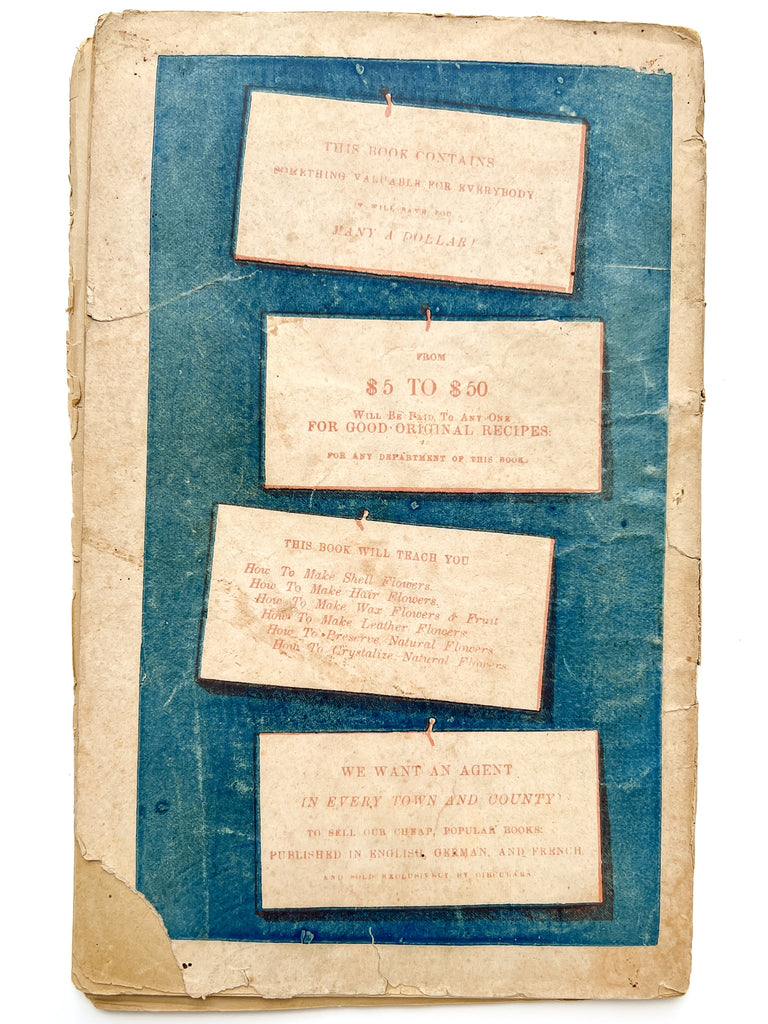 THIS BOOK CONTAINS
SOMETHING VALUABLE FOR EVERYBODY
IT WILL SAVE YOU
MANY A DOLLAR!
FROM
$5 TO $50
Will Be Paid To Any One
FOR GOOD ORIGINAL RECIPES:
FOR ANY DEPARTMENT OF THIS BOOK.
THIS BOOK WILL TEACH YOU
How To Make Shell Flowers.
How To Make Hair Flowers.
How To Make Wax Flowers & Fruit
How To Make Leather Flowers
How To Preserve Natural Flowers
How To Crystalize Natural Flowers
WE WANT AN AGENT
IN EVERY TOWN AND COUNTY
TO SELL OUR CHEAP, POPULAR BOOKS:
PUBLISHED IN ENGLISH, GERMAN, AND FRENCH
AND SOLD EXCLUSIVELY BY CIRCULARS